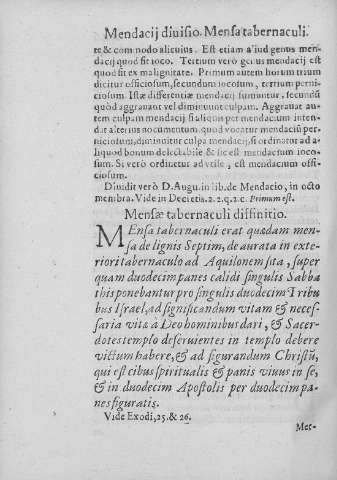 Mendacij diuisio. Mensa tabernaculi.
te & commodo alicuius. Est etiam aliud genus men-
dacij quod fit ioco. Tertium verò genus mendacij est
quod fit ex malignitate. Primum autem horum trium
dicitur officiosum, secundum iocosum, tertium perni-
ciosum. Istæ differentiæ mendacij sumuntur, secundũ
quòd aggrauant vel diminuunt culpam. Aggrauat au-
tem culpam mendacij si aliquis per mendacium inten-
dat alterius nocumentum, quod vocatur mendaciũ per-
niciosum, diminuitur culpa mendacij, si ordinatur ad a-
liquod bonum delectabile & sic est mendacium ioco-
sum. Si verò ordinetur ad vtile, est mendacium offi-
ciosum.
Diuidit verò D. Augu. in lib. de Mendacio, in octo
membra. Vide in Decretis. 2. 2. q. 2. c. Primum est.
Mensæ tabernaculi diffinitio.
MEnsa tabernaculi erat quædam men-
sa de lignis Septim, de aurata in exte-
riori tabernaculo ad Aquilonem sita, super
quam duodecim panes calidi singulis Sabba
this ponebantur pro singulis duodecim Tribu
bus Israel, ad significandum vitam & neces-
saria vitæ à Deo hominibus dari, & Sacer-
dotes templo deseruientes in templo debere
victum habere, & ad figurandum Christũ,
qui est cibus spiritualis & panis viuus in se,
& in duodecim Apostolis per duodecim pa-
nes figuratis.
Vide Exodi, 25. & 26.
Met-